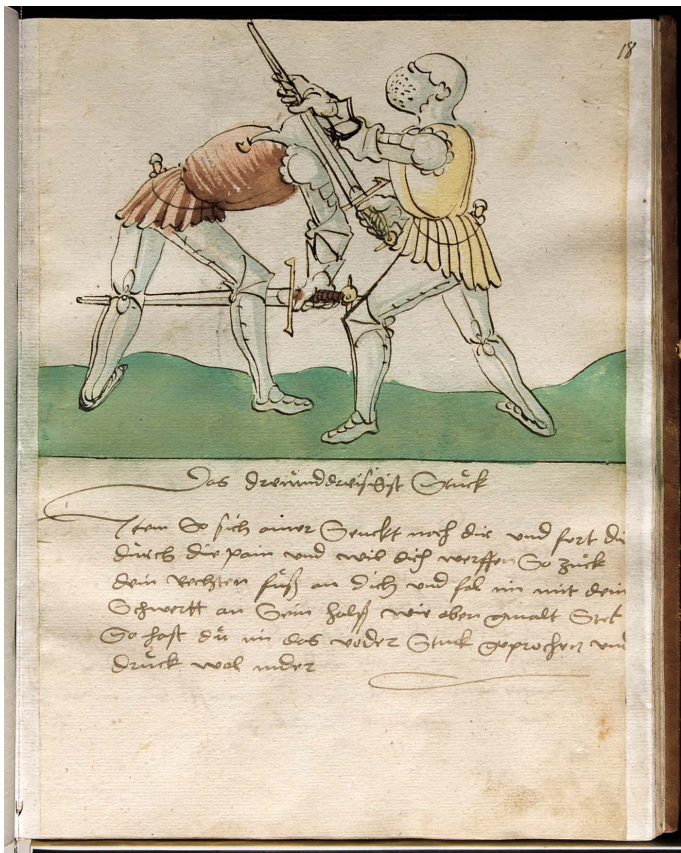 18
Das dreiunddreisigist Stuck
Item So sich ainer Senckt nach dir und fert dir
durch die pain und wil dich werffen So zuck
dein rechten fuß an dich und fal im mit deim
Schwertt an Sein halß wie oben gmalt Stet
So hast du im das voder Stuck geprochen und
druck wol nider